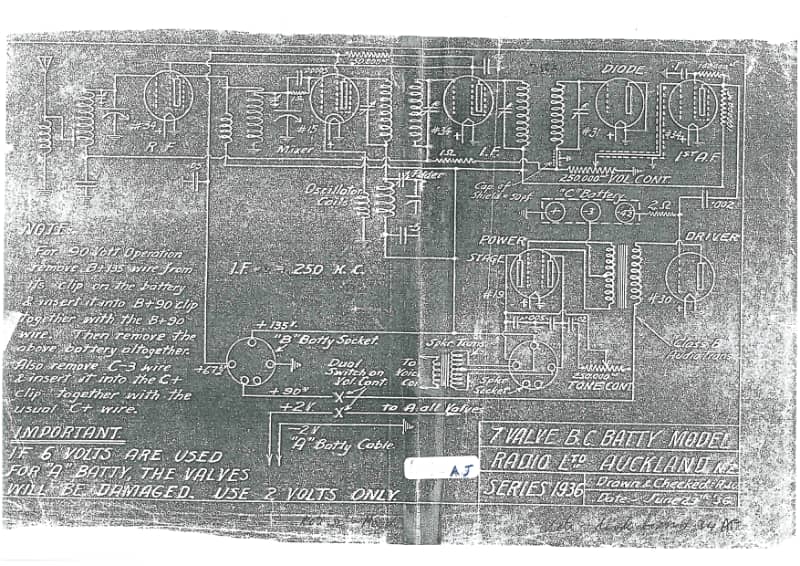 DIODE
#34
R.F
#15
Mixer
#34
1Ω
I.F.
#31
#34
1ST A.F.
250,000ω VOL CONT.
Oscillator
Coils
Padder
Cap. of
Shield = 50pf
"C" Battery
2Ω
.002
POWER
STAGE
DRIVER
#19
#30
NOTE:
For 90 Volt Operation
remove B+135 wire from
its clip on the battery
& insert it into B+90 clip
together with the B+90
wire. Then remove the
above battery altogether.
Also remove C-3 wire
& insert it into the C+
clip together with the
usual C+ wire.
I.F. = 250 K.C.
+135v.
"B" Batty Socket.
+67½
Dual
Switch on
Vol. Cont.
+90v
+2V
-2V
"A" Batty Cable.
To
Voice
to A all Valves
Spkr. Trans.
Spkr
Socket
.005
250,000ω
TONE CONT
Class B
Audio Trans.
IMPORTANT
IF 6 VOLTS ARE USED
FOR "A" BATTY, THE VALVES
WILL BE DAMAGED. USE 2 VOLTS ONLY
AJ
7 VALVE B.C BATTY MODEL
RADIO LTD AUCKLAND N.Z.
SERIES 1936
Drawn & Checked
Date - June 23rd 36.